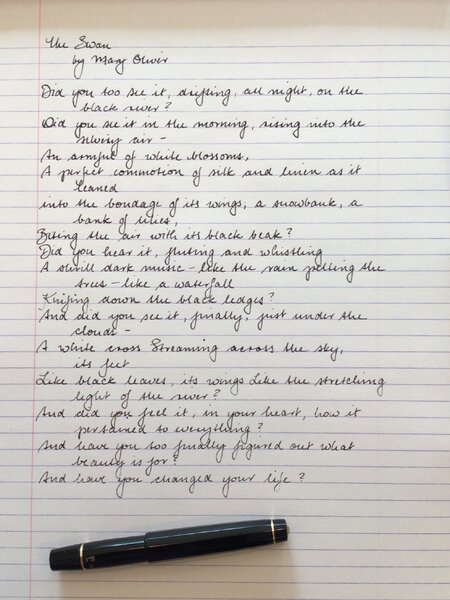 The Swan
by Mary Oliver
Did you too see it, drifting, all night, on the
black river?
Did you see it in the morning, rising into the
silvery air -
An armful of white blossoms,
A perfect commotion of silk and linen as it
leaned
into the bondage of its wings; a snowbank, a
bank of lilies,
Biting the air with its black beak?
Did you hear it, fluting and whistling
A shrill dark music - like the rain pelting the
trees - like a waterfall
Knifing down the black ledges?
And did you see it, finally, just under the
clouds -
A white cross Streaming across the sky,
its feet
Like black leaves, its wings Like the stretching
light of the river?
And did you feel it, in your heart, how it
pertained to everything?
And have you too finally figured out what
beauty is for?
And have you changed your life?